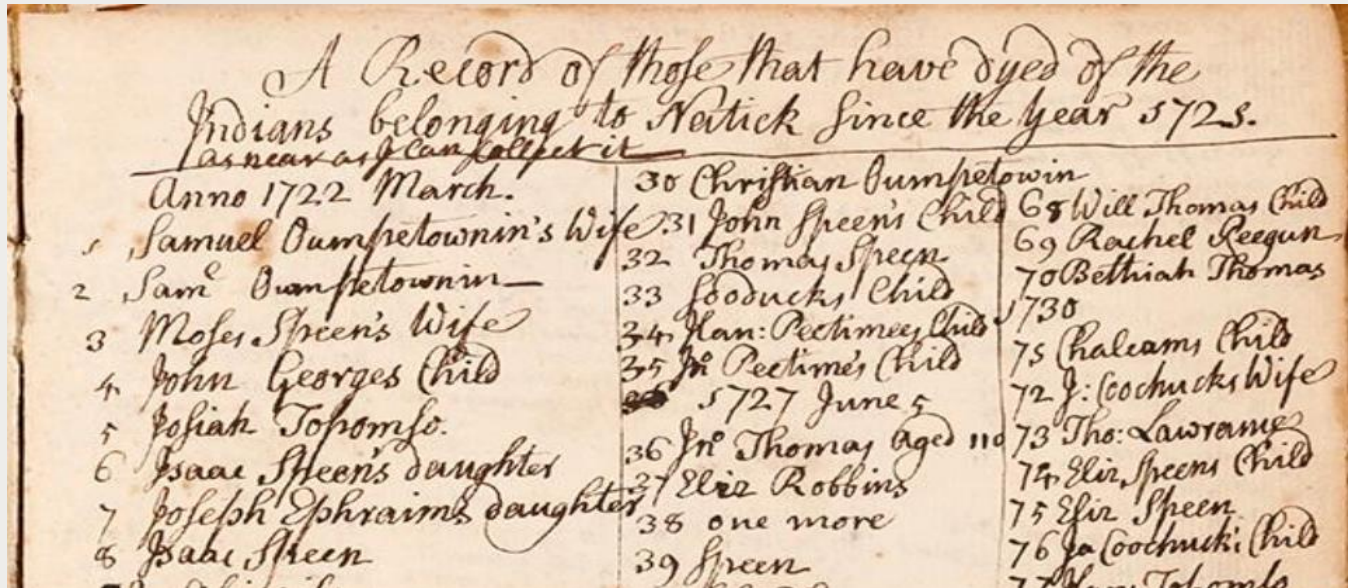 A Record of those that have dyed of the
Indians belonging to Natick Since the Year 1721.
as near as I can collect it
Anno 1722 March.
1 Samuel Oumpetownin's Wife
2 Sam^l Oumpetownin
3 Moses Speen's Wife
4 John Georges Child
5 Josiah Topomso.
6 Isaac Speen's daughter
7 Joseph Ephraims daughter
8 Isaac Speen
30 Christian Oumpetowin
31 John Speen's Child
32 Thomas Speen
33 Sooducks Child
34 Han: Peetimees Child
35 Jn^o Peetimes Child
1727 June 5
36 Jn^o Thomas Aged 110
37 Eliz Robbins
38 one more
39 Speen
68 Will Thomas Child
69 Rachel Peegun
70 Bethiah Thomas
1730
71 Chalcams Child
72 J: Coochucks Wife
73 Tho: Lawrance
74 Eliz Speens Child
75 Eliz Speen
76 Ja Coochucks Child